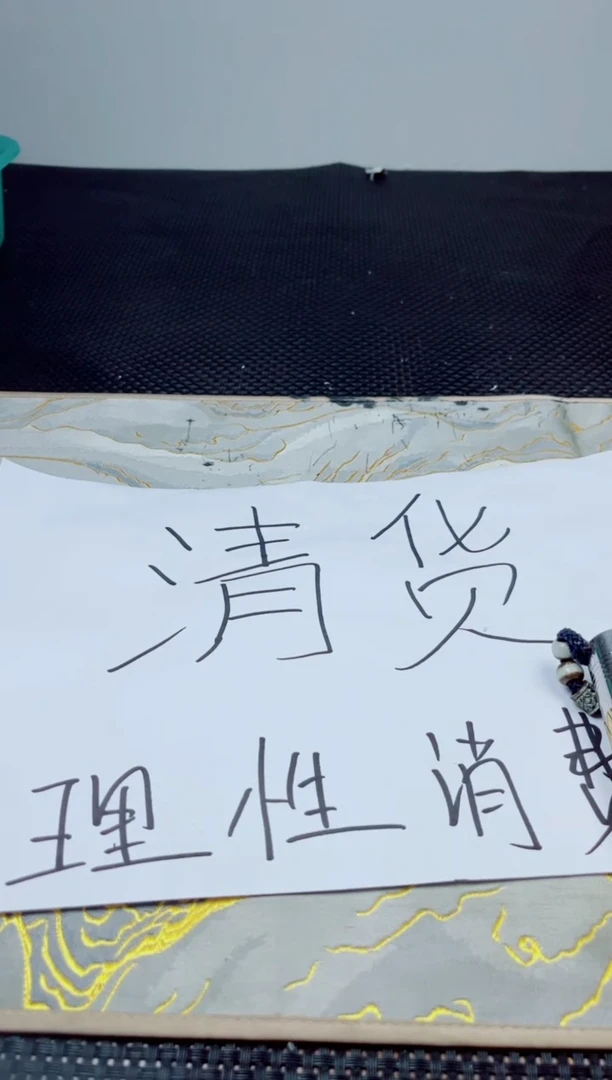 清货
理性消费